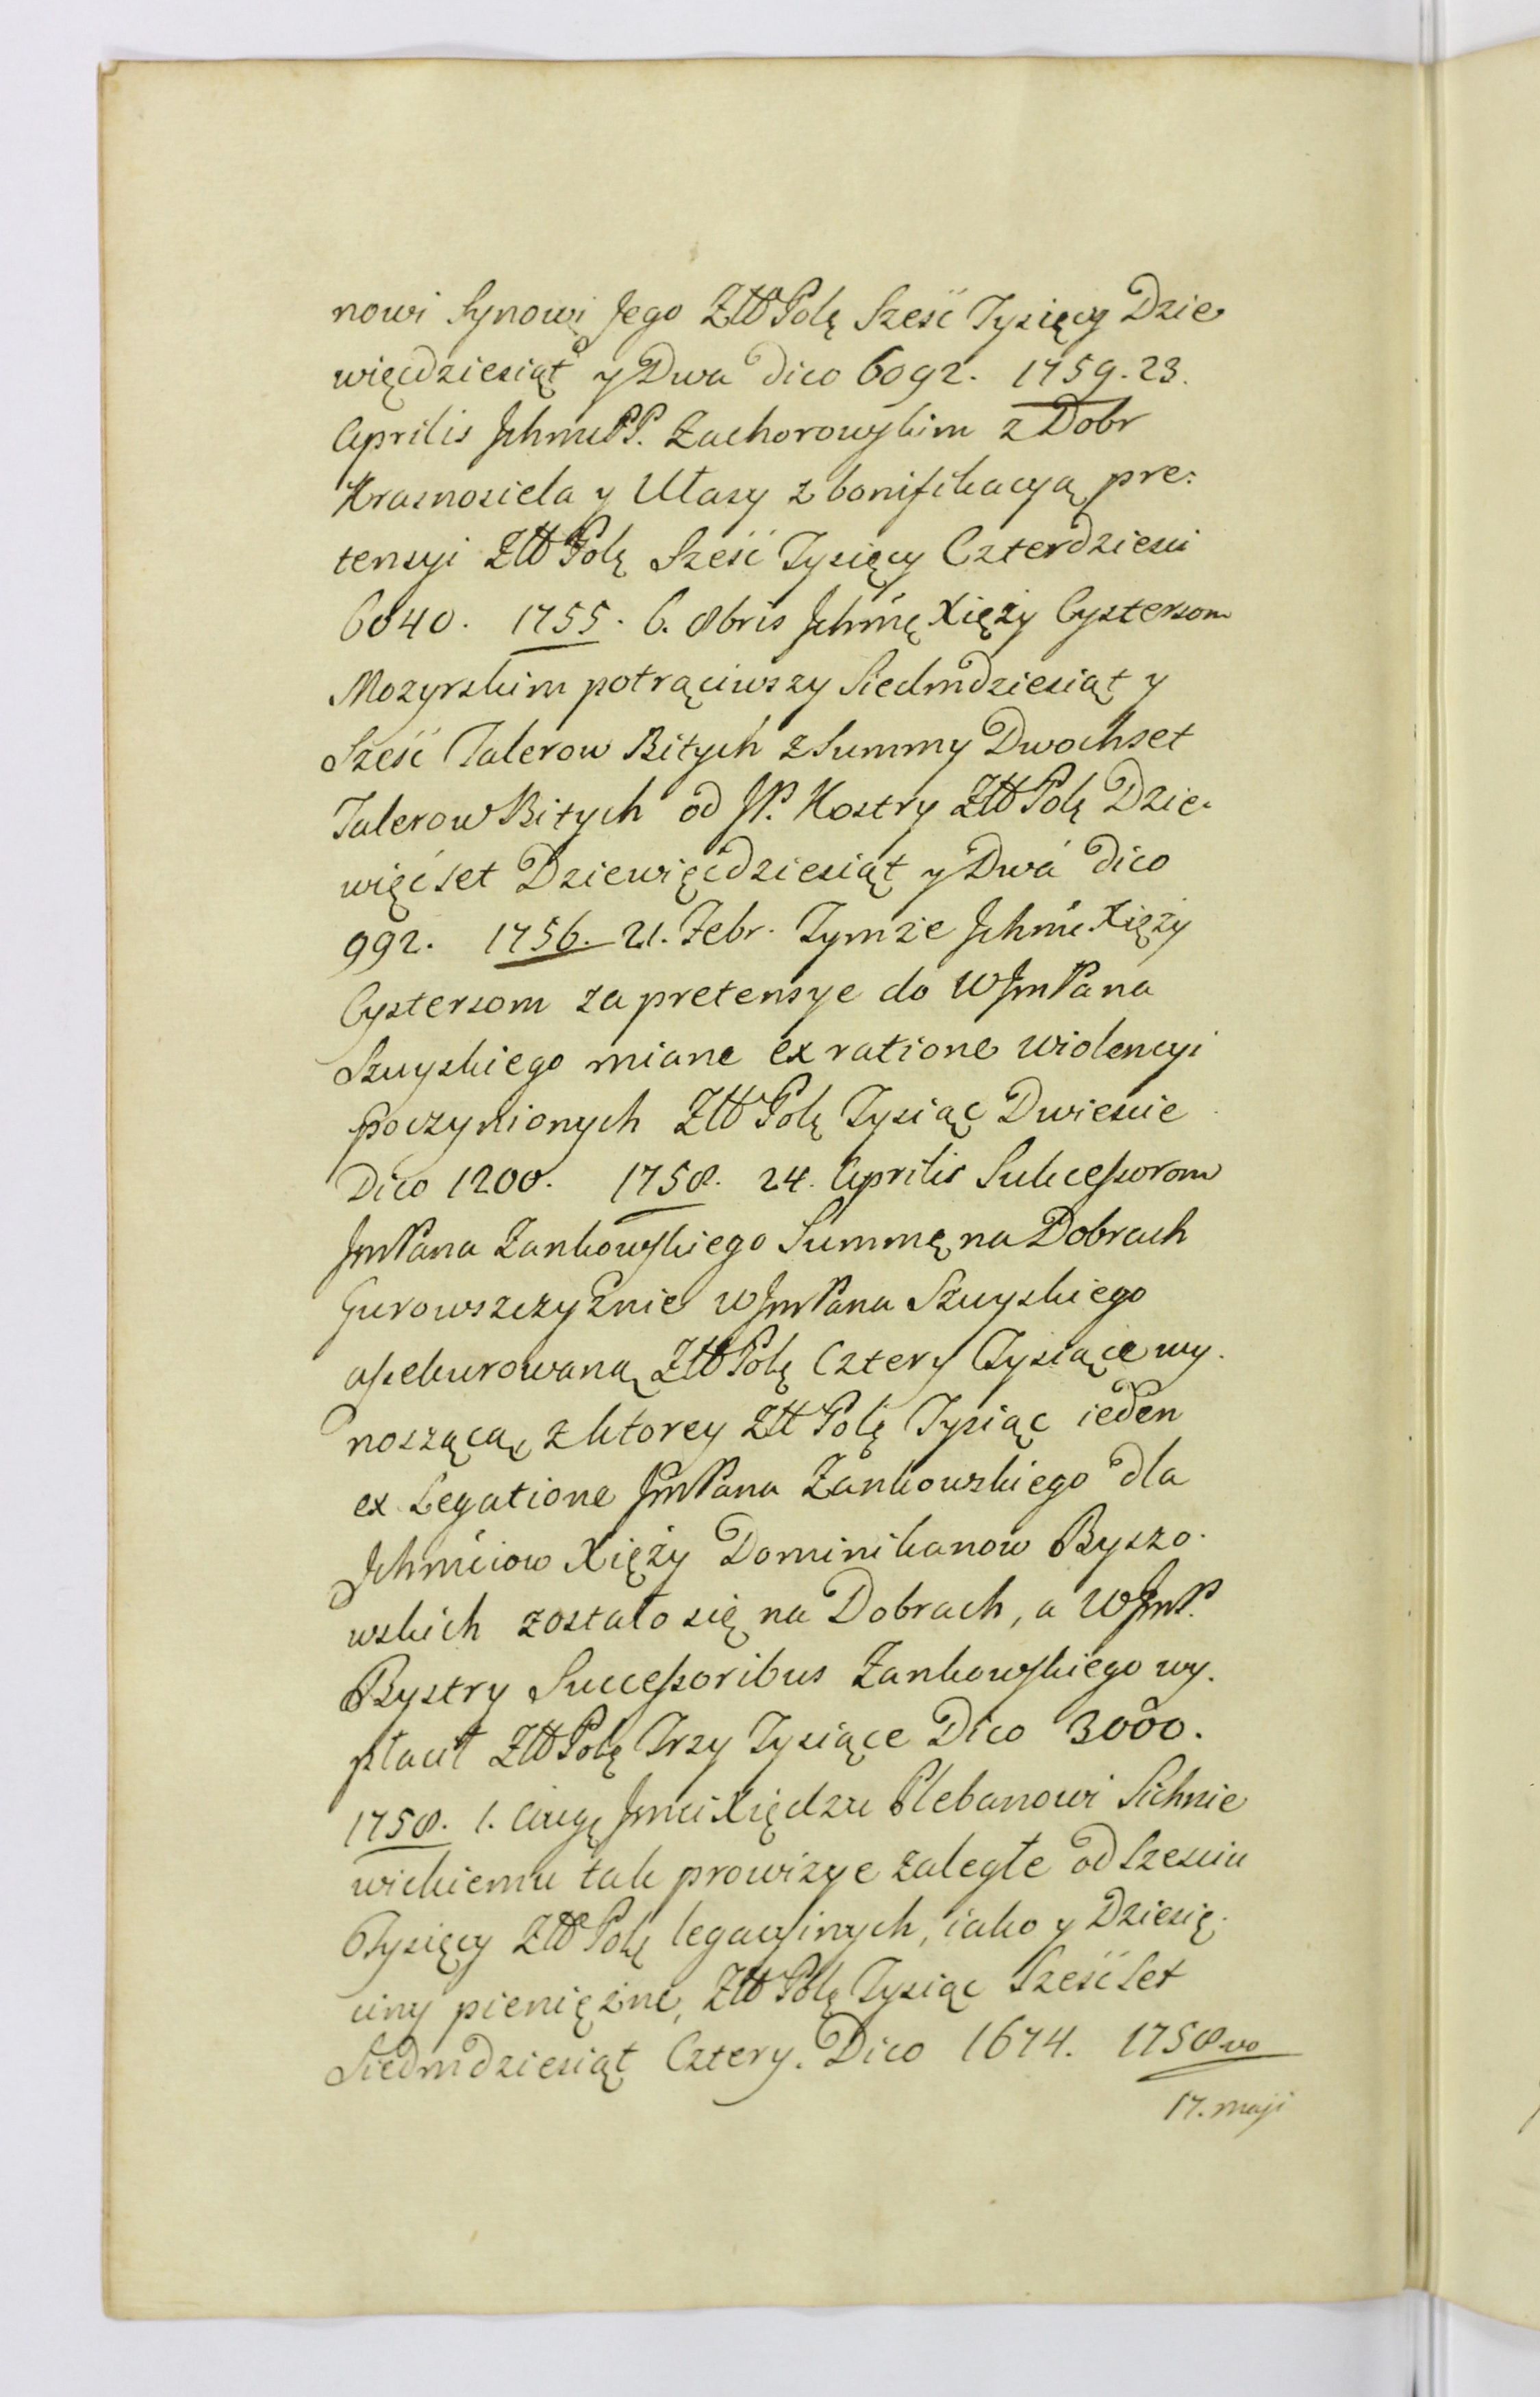 nowi Synowi Jego Złł Polę Sześć Tysięcy Dzie
więcdziesiąt y Dwa dico 6092. 1759. 23.
Aprilis Jchmć PP. Zachorowskim z Dobr
Krasnosiela y Ułasy z bonifikacyą pre:
tensyi Złł Polę Sześć Tysięcy Czterdzieści
6040. 1755. 6. 8bris Jchmć Xięży Cystersom
Mozyrskim potrąciwszy Siedmdziesiąt y
Sześć Talerow Bitych z Summy Dwochset
Talerow Bitych od JP. Kostry Złł Polę Dzie-
więćset Dziewięćdziesiąt y Dwa dico
992. 1756. 21. Febr. Tymże Jchmć Xięży
Cystersom za pretensye do WJmPana
Szuyskiego miane ex ratione wiolencyi
poczynionych Złł Polę Tysiąc Dwieście
Dico 1200. 1758. 24. Aprilis Sukcessorom
JmPana Zankowskiego Summę na Dobrach
Gurowszczyznie WJmPana Szuyskiego
assekurowaną Złł Polę Cztery Tysiące wy-
noszącą, z ktorey Złł Polę Tysiąc ieden
ex Legatione JmPana Zankowskiego dla
Jchmściow Xięży Dominikanow Byszo-
wskich zostało się na Dobrach, a WJmP.
Bystry Successoribus Zankowskiego wy-
płacił Złł Polę Trzy Tysiące Dico 3000.
1758. 1. Augę Jmci Xiędzu Plebanowi Sichnie
wickiemu tak prowizye zaległe od Sześciu
Tysięcy Złł Polę legacyinych, iako y Dziesię-
ciny pieniężne, Złł Polę Tysiąc Sześćset
Siedmdziesiąt Cztery. Dico 1674. 1758vo
17. maji